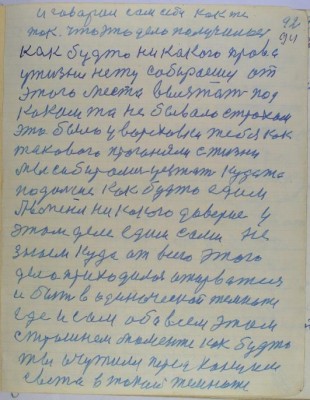 и говорил сам себе как же
так. что это дело получилось 92
как будто ни какого права 94
у жизни нету собираешь от
этого места выезжать под
каким то не бывало страхом
это было у верховки тебя как
такового прогоняли с жизни
мы собирались уезжать куда то
подальше как будто едим
людьми ни какого доверие у
этом деле едим сами не
знаем куда от всего этого
дела приходилося отрыватся
и быть в одиначеской темноте
где и сам обо всем этом
страшнем моменте как будто
мы очутили перед концом
света в такой темноте